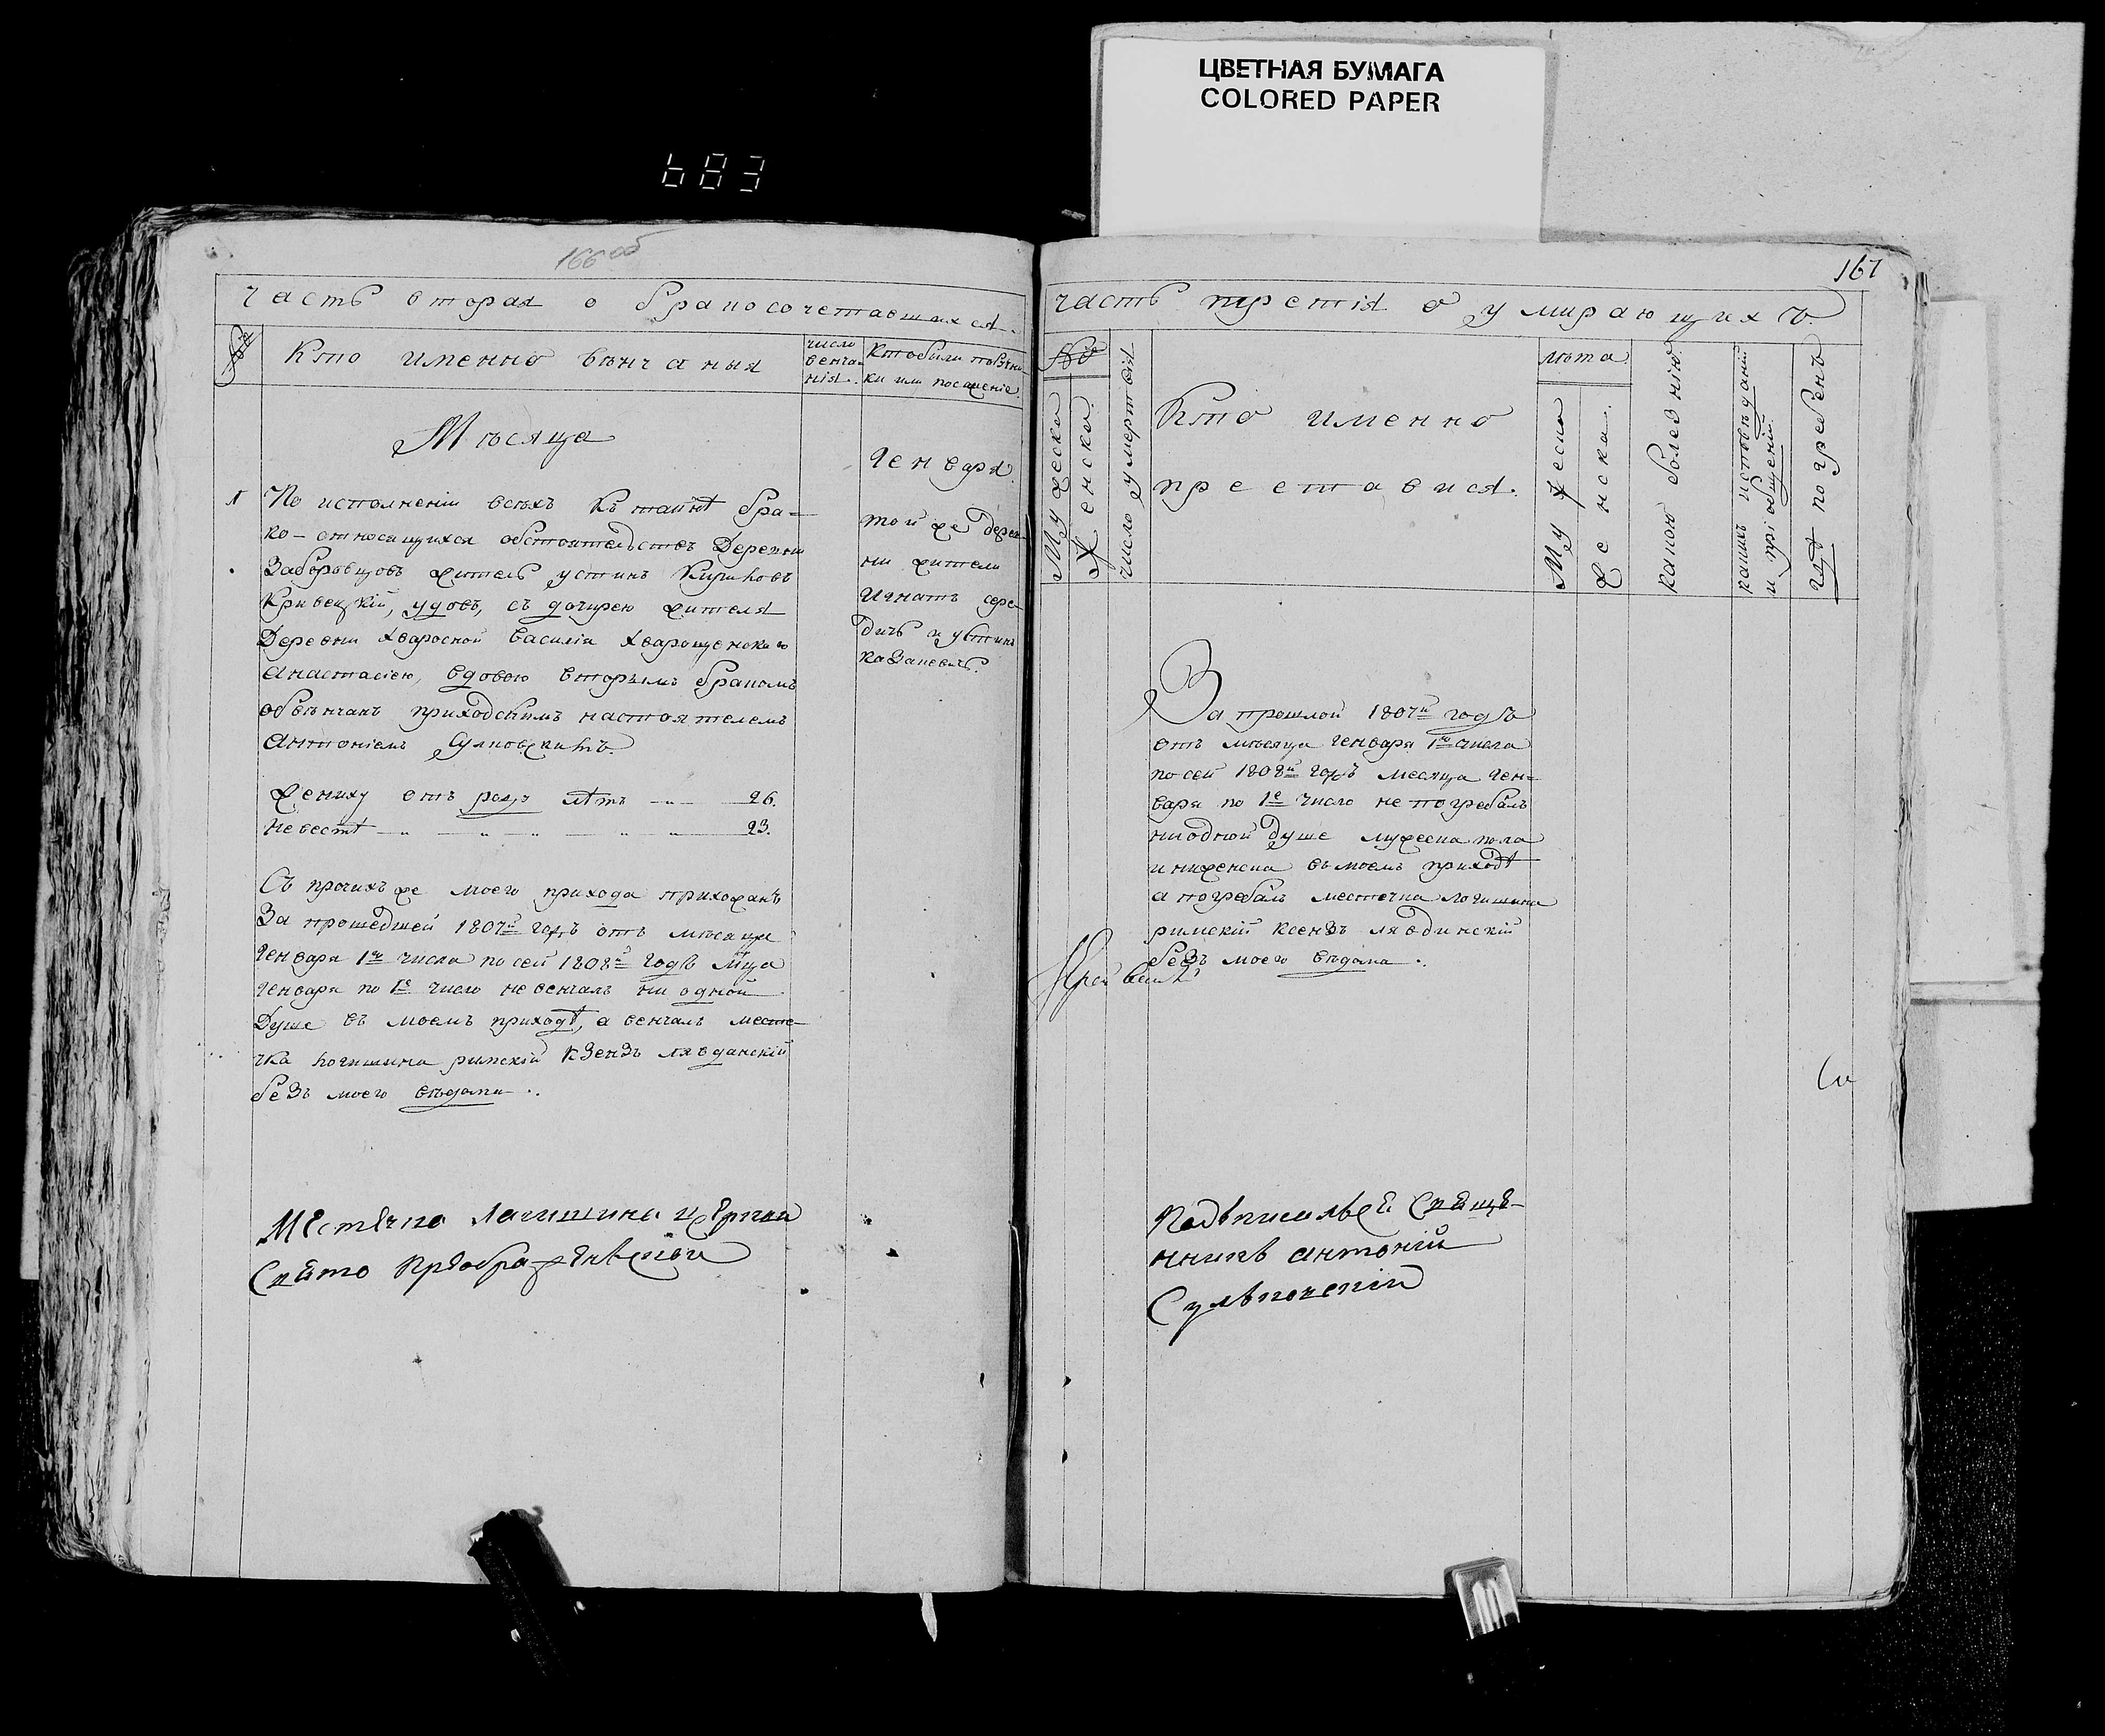 ЦВЕТНАЯ БУМАГА
COLORED PAPER
683
166 об
часть вторая о бракосочетавшихся.
№
Кто именно вѣнчаныя
число венча-
нія.
Кто были поѣзжа-
ки или посаженіе.
Мѣсяца
Генваря.
1
По исполненіи всѣхъ къ тайнѣ бра-
ко-относящихся обстоятельствъ Деревни
Заборовцовъ житель устинъ
Кривецкій, удовъ, съ дочирею жителя
Деревни Хваросной Василія Хворощенскаго
Анастасіею, вдовою вторымъ бракомъ
обвѣнчанъ приходскимъ настоятелемъ
Антоніемъ
той же дерев-
ни жители
Игнатъ сере-
дичъ и устинъ
казаневичъ.
Жениху отъ роду лѣтъ 26.
Невестѣ 23.
Съ прочихъ же моего прихода прихожанъ
За прошедшей 1807й годъ отъ мѣсяца
Генваря 1го числа по сей 1808й годъ мца
Генваря по 1е число не венчалъ ни одной
Душе въ моемъ приходѣ, а венчалъ месте-
чка Логишина римскій Ксензъ лявданскій
безъ моего вѣдома.
Местечка Лагишина церкви
Свято Преображенской
167
часть третія о умирающихъ.
№
Мужеска
Женска.
число умертвія
Кто именно
преставися.
лѣта
Мужеска
Женска.
какою болезнію
какихъ исповѣданій
и пріобщеній.
гдѣ погребенъ
За прошлой 1807й годъ
отъ мѣсяца генваря 1го числа
по сей 1808й годъ месяца ген-
варя по 1е число не погребалъ
ниодной душе мужеска пола
и ниженска въ моемъ приходѣ
а погребалъ местечка логишина
римскій ксензъ лявдинскій
безъ моего вѣдома.
Подьписалься Свяще-
нникъ антоній